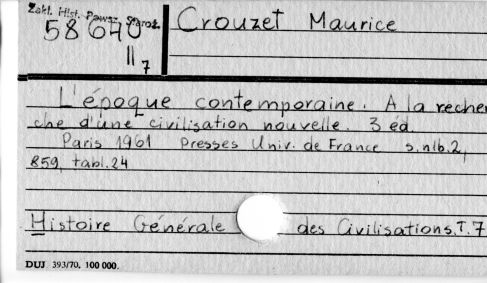 Zakł. Hist. Powsz. Staroż.
58640
II 7
Crouzet Maurice
L'époque contemporaine. A la recher
che d'une civilisation nouvelle. 3 éd.
Paris 1961 Presses Univ. de France s. nlb. 2,
859, tabl. 24
Histoire Générale des Civilisations. T. 7
DUJ 393/70. 100 000.